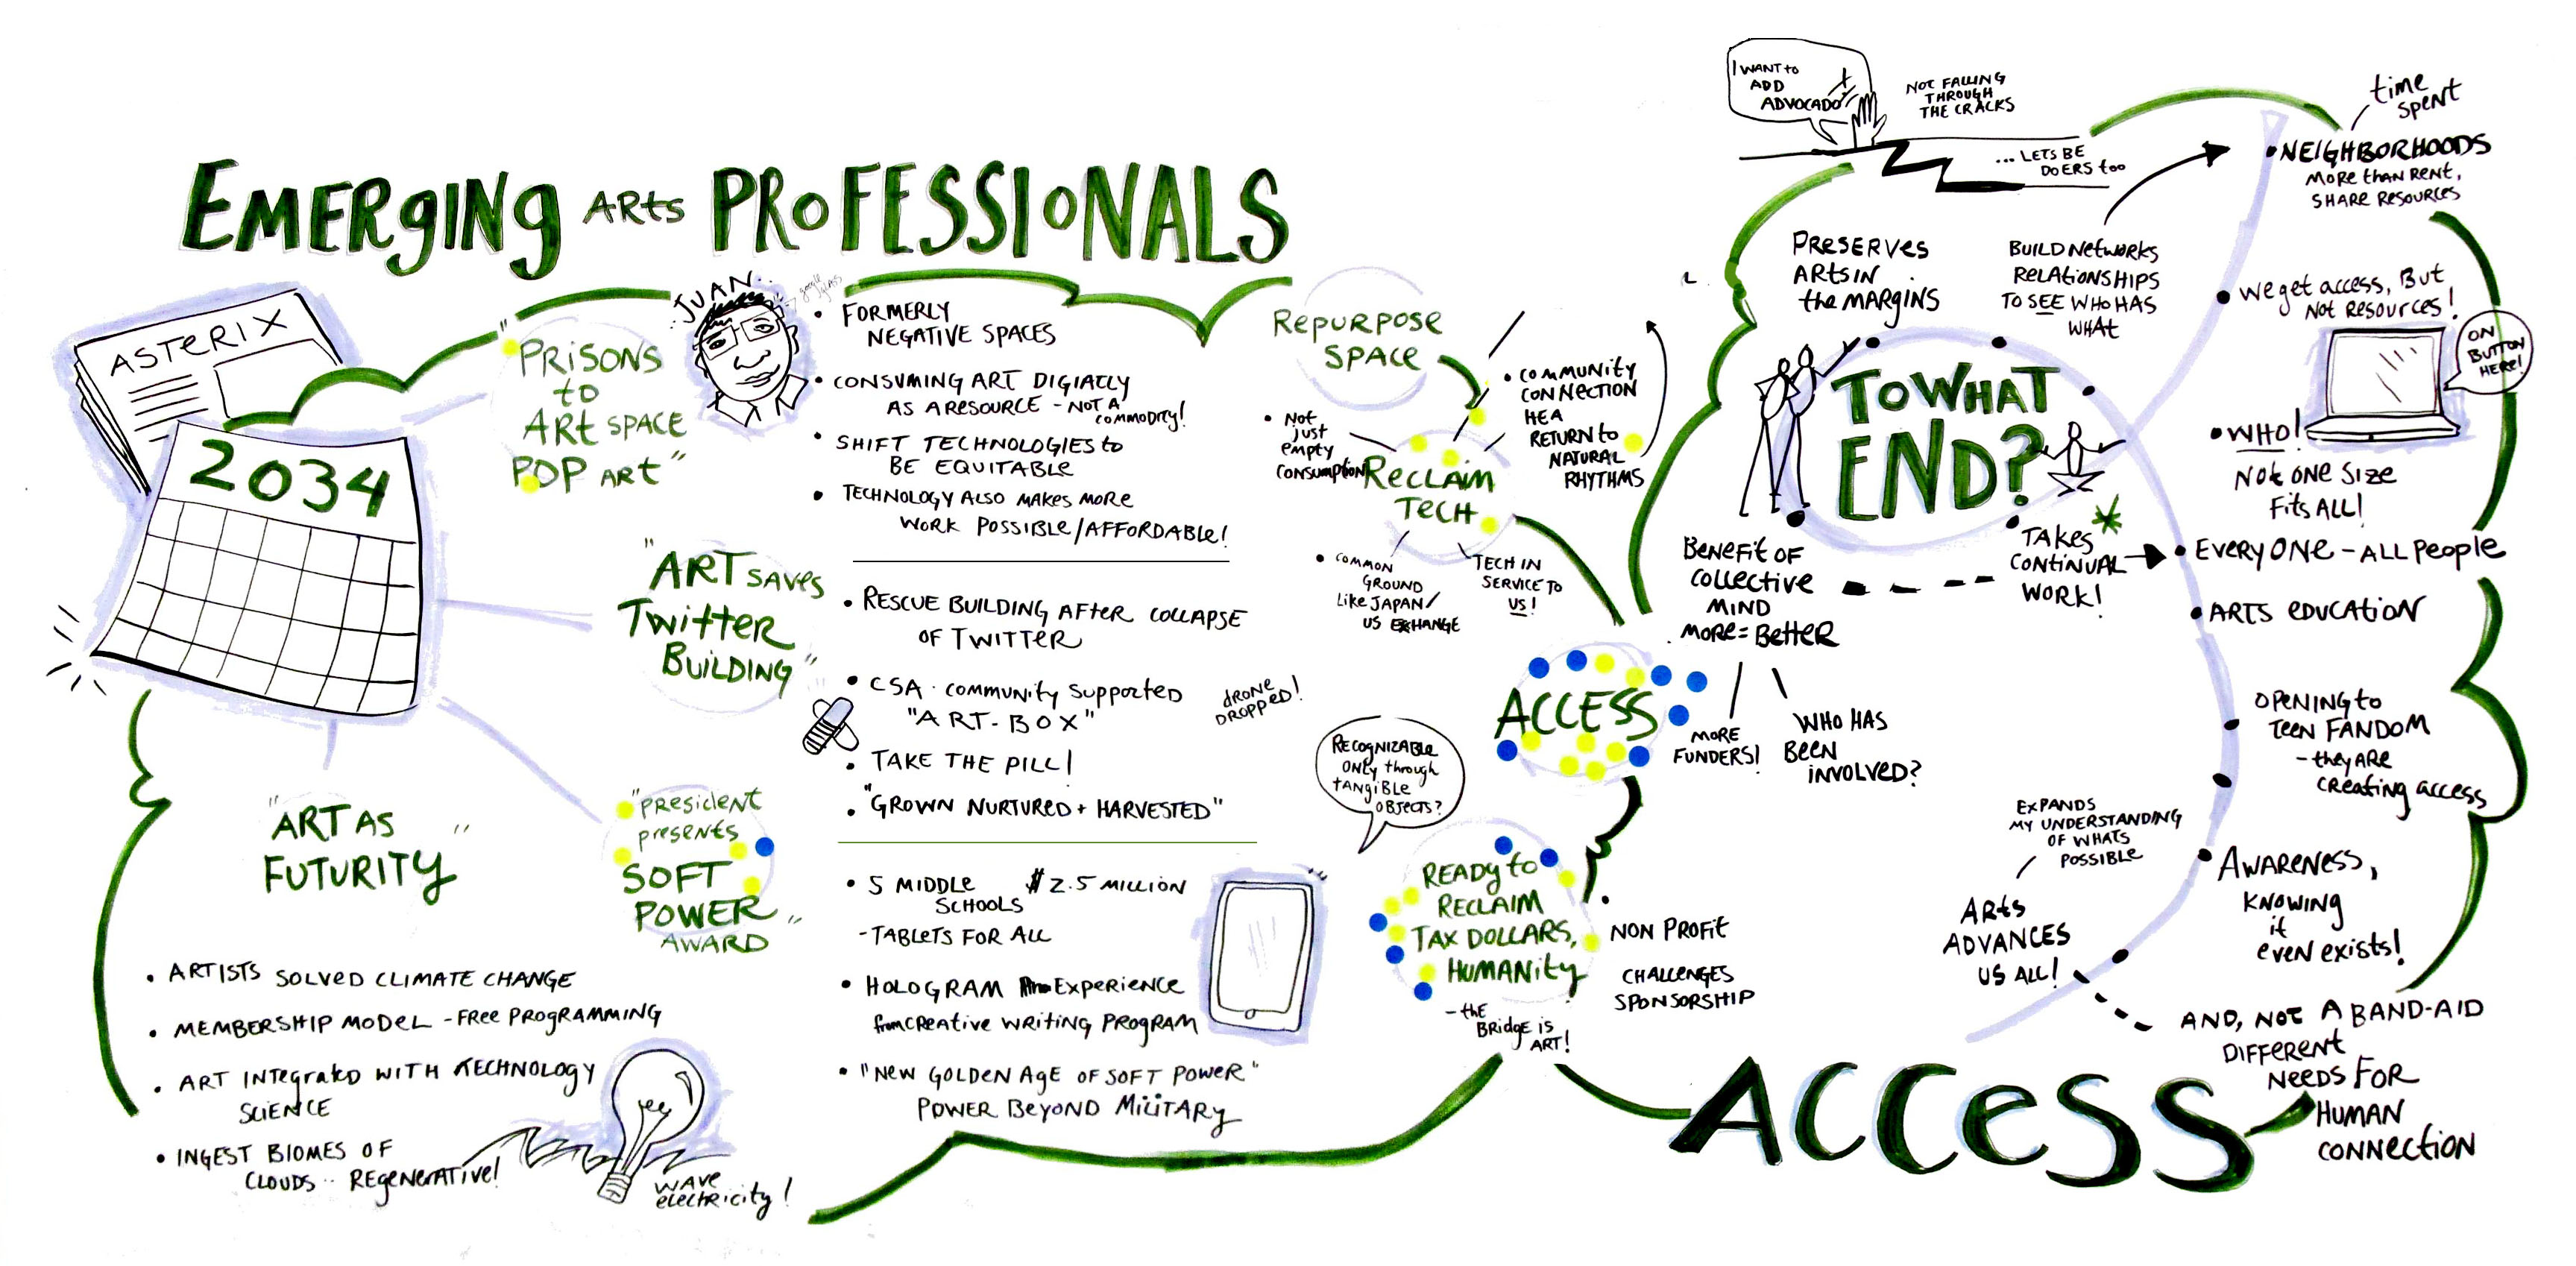 EMERGING ARTS PROFESSIONALS
ASTERIX
2034
"PRISONS
to
ART SPACE
POP ART"
JUAN..
google
glass
• FORMERLY
NEGATIVE SPACES
• CONSUMING ART DIGIATLLY
AS A RESOURCE - NOT A
COMMODITY!
• SHIFT TECHNOLOGIES to
BE EQUITABLE
• TECHNOLOGY ALSO MAKES MORE
WORK POSSIBLE/AFFORDABLE!
"ART SAVES
Twitter
BUILDING"
• RESCUE BUILDING AFTER COLLAPSE
OF TWITTER
• CSA · COMMUNITY SUPPORTED
"ART-BOX"
DRONE
DROPPED!
• TAKE THE PILL!
• "GROWN NURTURED + HARVESTED"
"PRESIDENT
PRESENTS
SOFT
POWER"
AWARD
• 5 MIDDLE
SCHOOLS
$2.5 MILLION
- TABLETS FOR ALL
• HOLOGRAM EXPERIENCE
from CREATIVE WRITING PROGRAM
• "NEW GOLDEN AGE OF SOFT POWER"
POWER BEYOND MILITARY
"ART AS
FUTURITY"
• ARTISTS SOLVED CLIMATE CHANGE
• MEMBERSHIP MODEL - FREE PROGRAMMING
• ART INTEGRATED WITH TECHNOLOGY
SCIENCE
• INGEST BIOMES OF
CLOUDS ·· REGENERATIVE!
WAVE
electricity!
REPURPOSE
SPACE
• NOT
just
empty
consumption
RECLAIM
TECH
• COMMUNITY
CONNECTION
HEA
RETURN to
NATURAL
RHYTHMS
• COMMON
GROUND
LIKE JAPAN/
US EXCHANGE
TECH IN
SERVICE TO
US!
ACCESS
RECOGNIZABLE
ONLY through
TANGIBLE
OBJECTS?
READY to
RECLAIM
TAX DOLLARS,
HUMANITY
- the
BRIDGE IS
ART!
• NON PROFIT
CHALLENGES
SPONSORSHIP
I WANT to
ADD
ADVOCADO
NOT FALLING
THROUGH
THE CRACKS
... LETS BE
DOERS too
PRESERVES
ARTS IN
the MARGINS
BUILD NETWORKS
RELATIONSHIPS
TO SEE WHO HAS
WHAT
TO WHAT
END?
BENEFIT OF
COLLECTIVE
MIND
MORE = BETTER
MORE
FUNDERS!
WHO HAS
BEEN
INVOLVED?
TAKES
CONTINUAL
WORK!
time
spent
• NEIGHBORHOODS
MORE THAN RENT,
SHARE RESOURCES
• We get access, BUT
NOT RESOURCES!
ON
BUTTON
HERE!
• WHO!
NOT ONE SIZE
FITS ALL!
• EVERYONE - ALL PEOPLE
• ARTS EDUCATION
• OPENING to
TEEN FANDOM
- they ARE
creating access
EXPANDS
MY UNDERSTANDING
OF WHATS
POSSIBLE
• AWARENESS,
KNOWING
it
even exists!
ARTS
ADVANCES
US ALL!
AND, NOT A BAND-AID
DIFFERENT
NEEDS FOR
HUMAN
CONNECTION
ACCESS